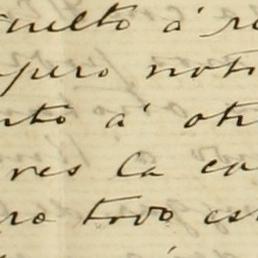 suelto á re
pero noti
nto á otr
res la ca
ro todo est